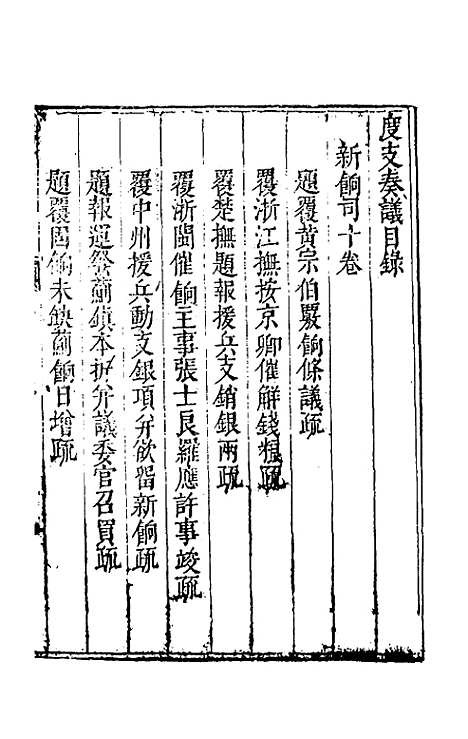 度支奏議目錄
新餉司十卷
題覆黃宗伯覈餉條議疏
覆浙江撫按京卿催解錢糧疏
覆楚撫題報援兵支銷銀兩疏
覆浙閩催餉主事張士良羅應許事竣疏
覆中州援兵動支銀項弁欲留新餉疏
題報運發薊鎮本折弁議委官召買疏
題覆因餉未缺薊餉日增疏